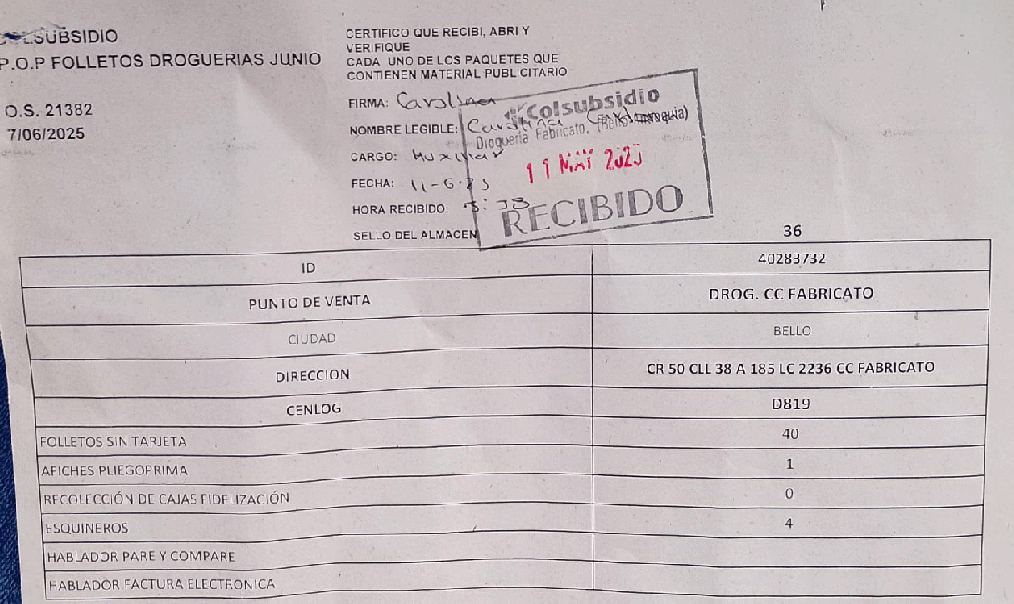 COLSUBSIDIO
P.O.P FOLLETOS DROGUERIAS JUNIO
O.S. 21382
7/06/2025
CERTIFICO QUE RECIBI, ABRI Y
VERIFIQUE
CADA UNO DE LOS PAQUETES QUE
CONTIENEN MATERIAL PUBLICITARIO
FIRMA: Carolina
NOMBRE LEGIBLE: Carolina
CARGO: Auxiliar
FECHA: 11-6-
HORA RECIBIDO
SELLO DEL ALMACEN
Colsubsidio
Droguería Fabricato,
RECIBIDO
36
ID 40283732
PUNTO DE VENTA DROG. CC FABRICATO
CIUDAD BELLO
DIRECCION CR 50 CLL 38 A 185 LC 2236 CC FABRICATO
CENLOG D819
FOLLETOS SIN TARJETA 40
AFICHES PLIEGO PRIMA 1
RECOLECCIÓN DE CAJAS FIDELIZACIÓN 0
ESQUINEROS 4
HABLADOR PARE Y COMPARE
HABLADOR FACTURA ELECTRONICA